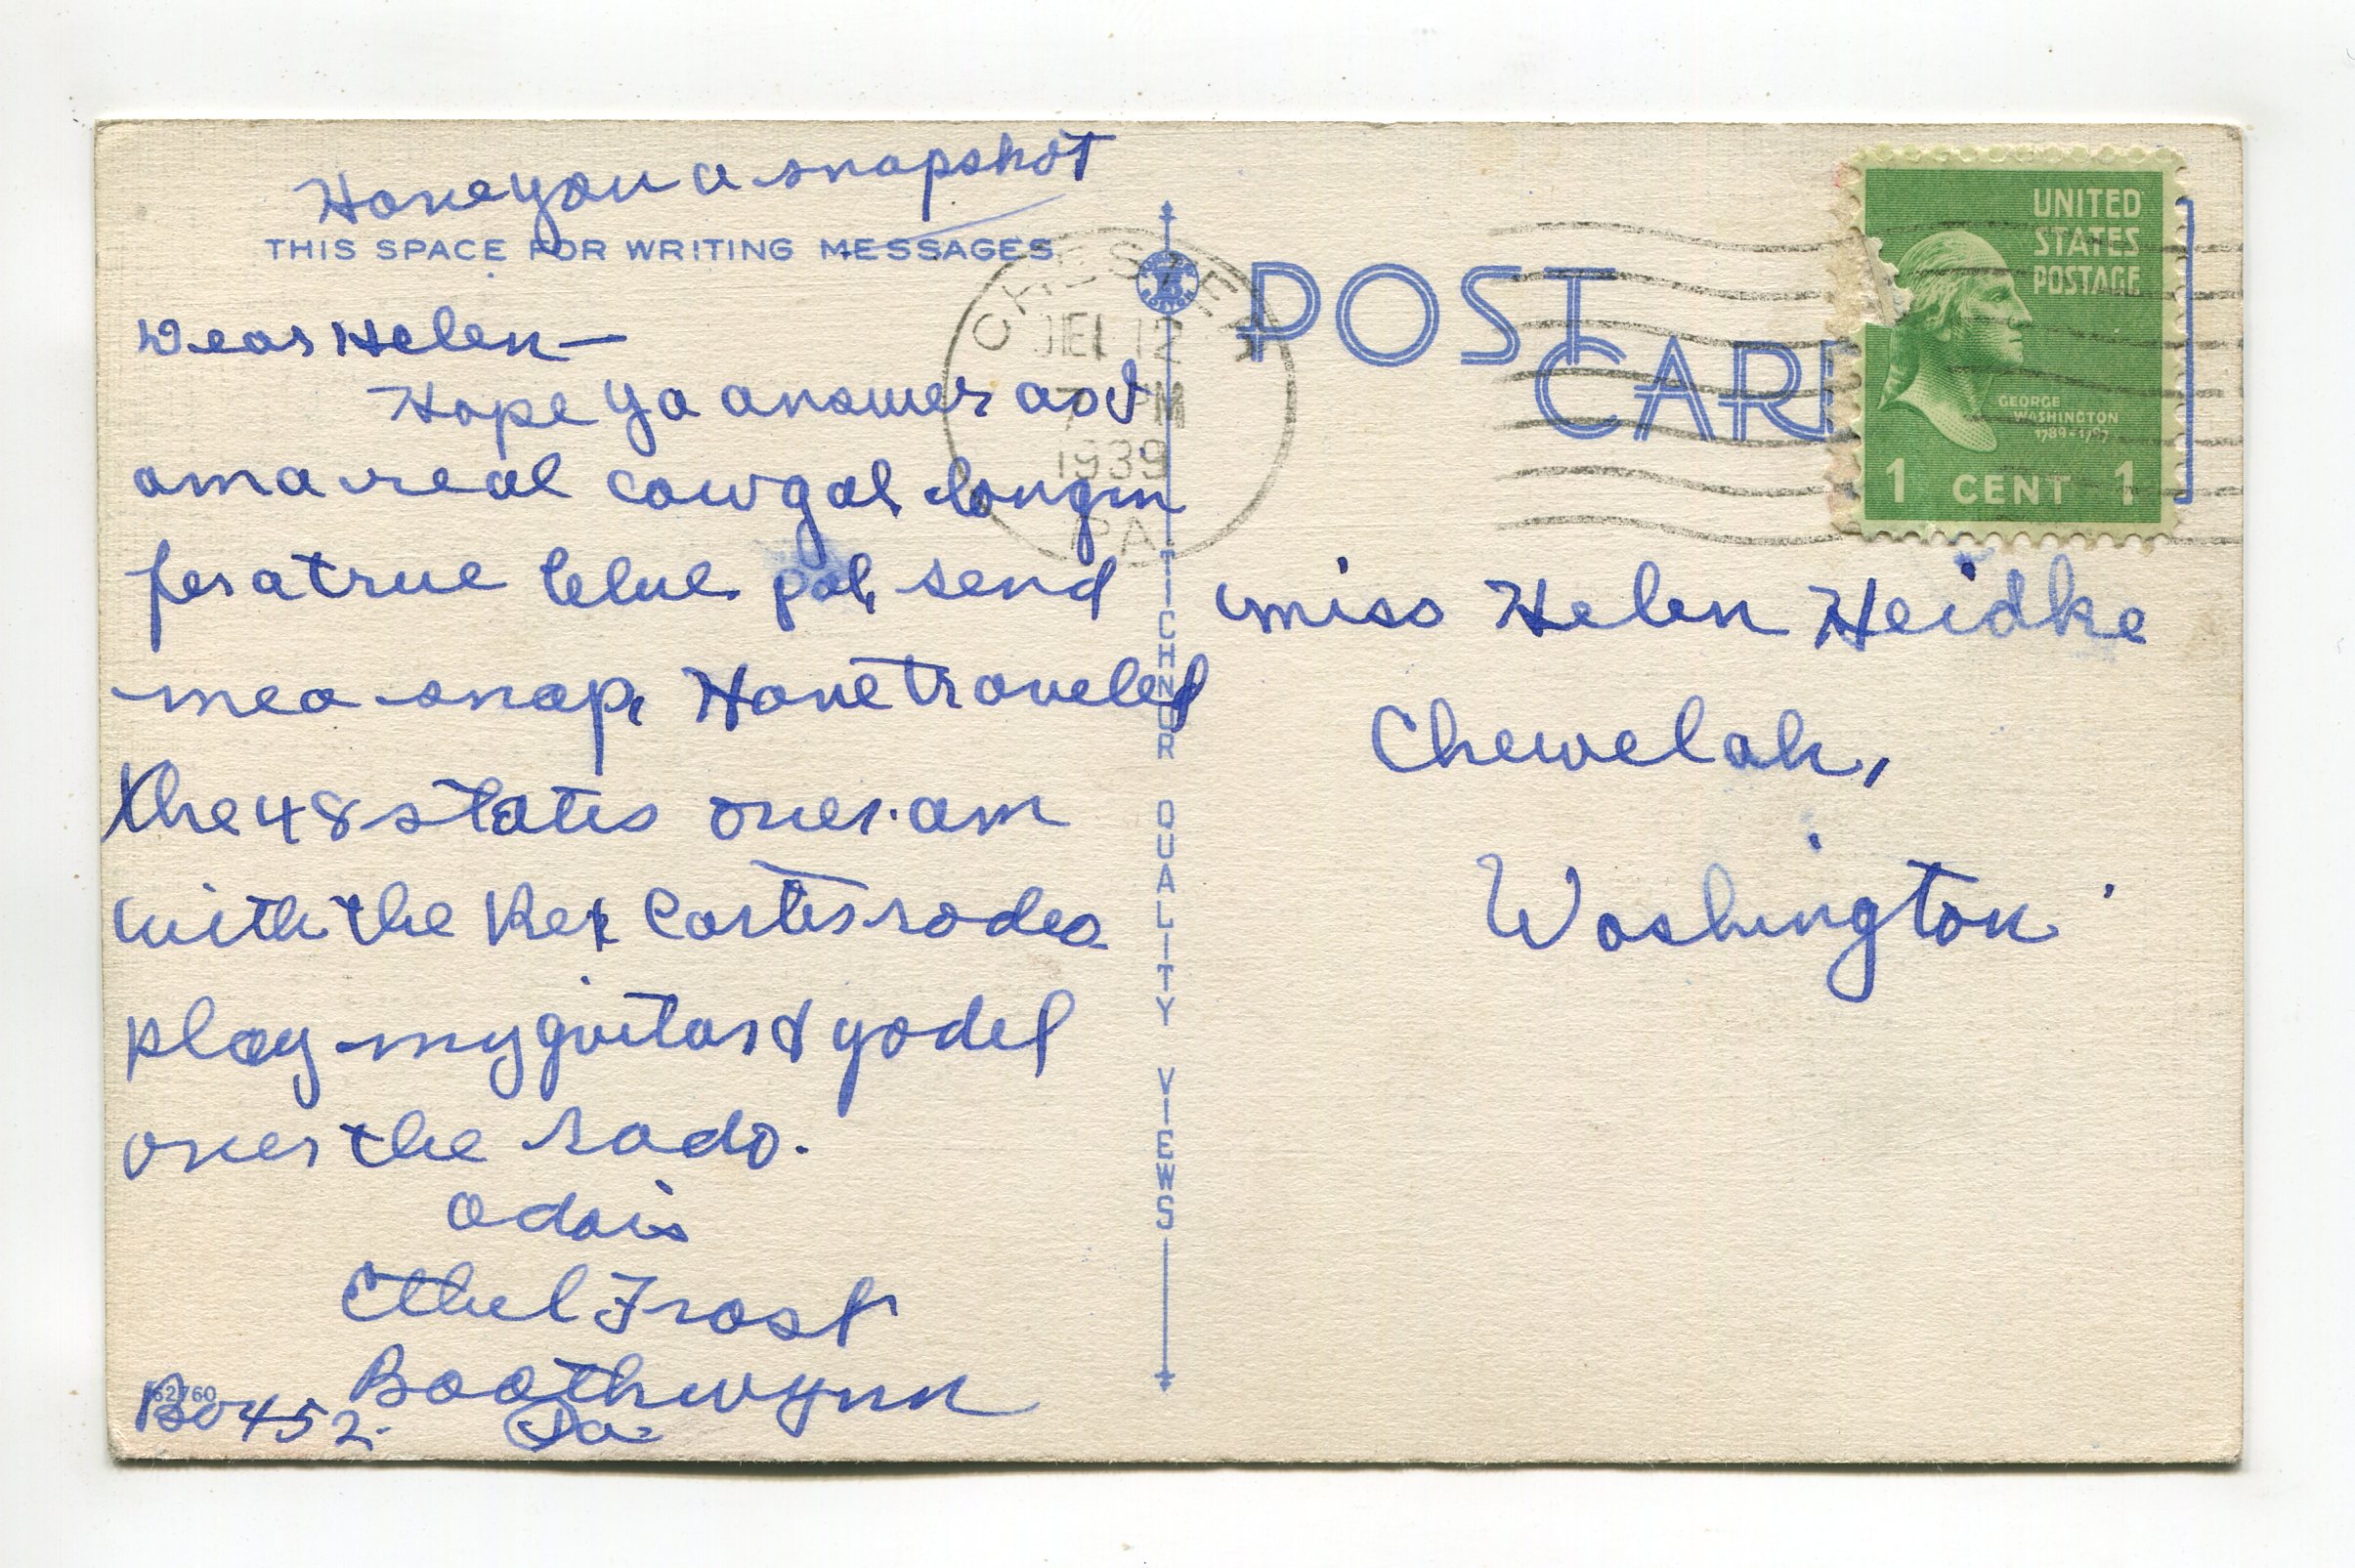 Have you a snapshot
THIS SPACE FOR WRITING MESSAGES
Dear Helen—
Hope ya answer as I
am a real cowgal longin
fer a true blue pal, send
me a snap, Have traveled
the 48 states over. am
with the Rex rodeo
play my guitar & yodel
over the rado.
Ethel Frost
Boothwynn
Pa.
Bo 452.
62760
TICHNOR QUALITY VIEWS
CHESTER
12
7 PM
1939
PA.
POST
CARD
UNITED
STATES
POSTAGE
GEORGE
WASHINGTON
1789-1797
1 CENT 1
Miss Helen Heidke
Chewelah,
Washington